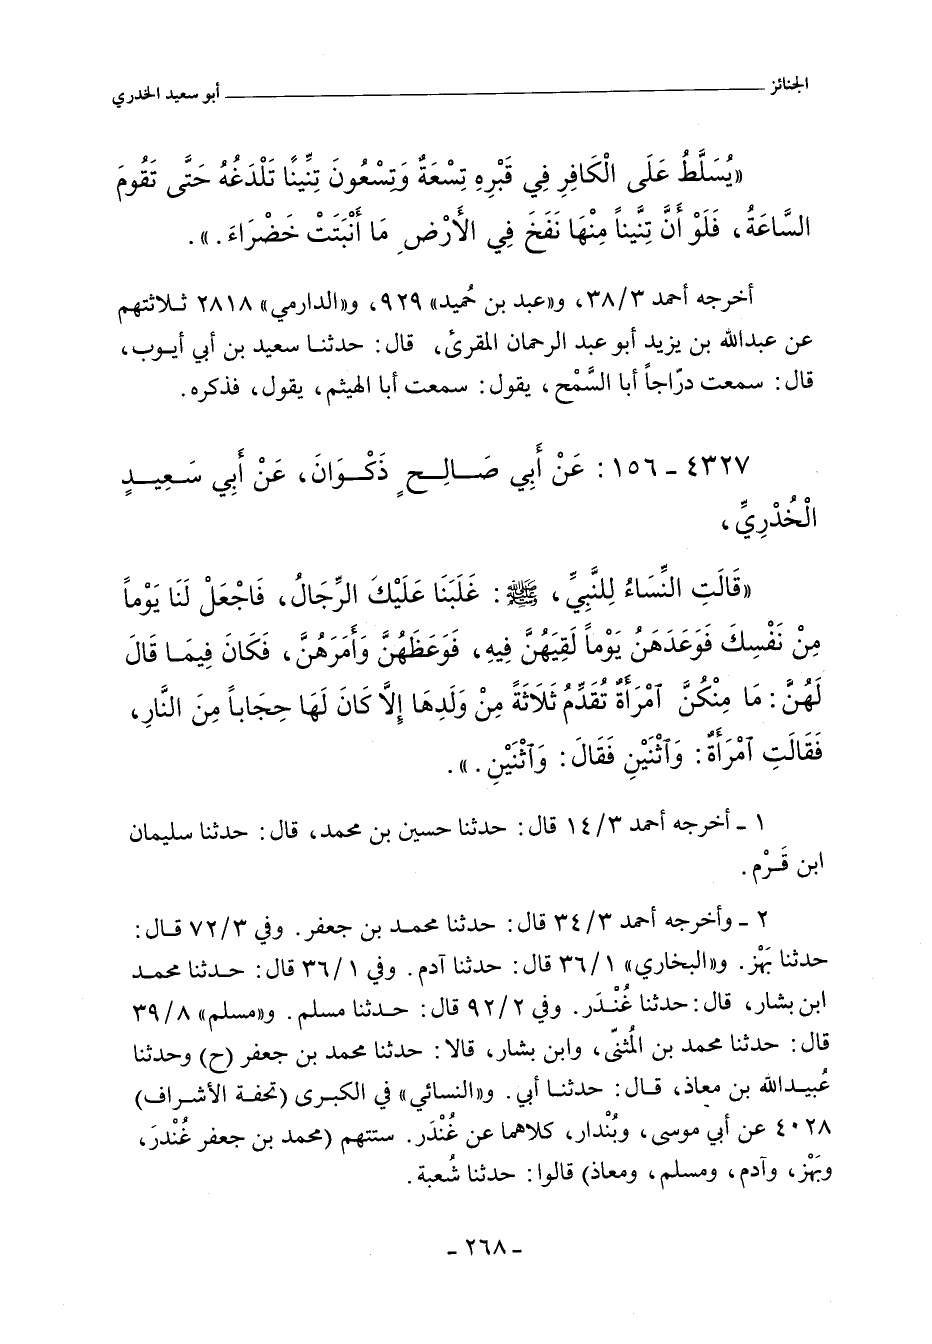 الجنائز ــــــــــــــــــــ أبو سعيد الخدري
«يُسَلَّطُ عَلَى الْكَافِرِ فِي قَبْرِهِ تِسْعَةٌ وَتِسْعُونَ تِنِّينًا تَلْدَغُهُ حَتَّى تَقُومَ
السَّاعَةُ، فَلَوْ أَنَّ تِنِّيناً مِنْهَا نَفَخَ فِي الأَرْضِ مَا أَنْبَتَتْ خَضْرَاءَ.».
أخرجه أحمد ٣٨/٣، و«عبد بن حُميد» ٩٢٩، و«الدارمي» ٢٨١٨ ثلاثتهم
عن عبدالله بن يزيد أبو عبد الرحمان المقرئ، قال: حدثنا سعيد بن أبي أيوب،
قال: سمعت درّاجاً أبا السَّمْح، يقول: سمعت أبا الهيثم، يقول، فذكره.
٤٣٢٧ - ١٥٦: عَنْ أَبِي صَالِحٍ ذَكْوَانَ، عَنْ أَبِي سَعِيدٍ
الْخُدْرِيِّ،
«قَالَتِ النِّسَاءُ لِلنَّبِيِّ، ﷺ: غَلَبَنَا عَلَيْكَ الرِّجَالُ، فَاجْعَلْ لَنَا يَوْماً
مِنْ نَفْسِكَ فَوَعَدَهَنُ يَوْماً لَقِيَهُنَّ فِيهِ، فَوَعَظَهُنَّ وَأَمَرَهُنَّ، فَكَانَ فِيمَا قَالَ
لَهُنَّ: مَا مِنْكُنَّ ٱمْرَأَةٌ تُقَدِّمُ ثَلَاثَةً مِنْ وَلَدِهَا إِلَّا كَانَ لَهَا حِجَاباً مِنَ النَّارِ،
فَقَالَتِ ٱمْرَأَةٌ: وَٱثْنَيْنِ فَقَالَ: وَٱثْنَيْنِ.».
١ - أخرجه أحمد ١٤/٣ قال: حدثنا حسين بن محمد، قال: حدثنا سليمان
ابن قَرْم.
٢ - وأخرجه أحمد ٣٤/٣ قال: حدثنا محمد بن جعفر. وفي ٧٢/٣ قال:
حدثنا بَهْز. و«البخاري» ٣٦/١ قال: حدثنا آدم. وفي ٣٦/١ قال: حدثنا محمد
ابن بشار، قال: حدثنا غُنْدَر. وفي ٩٢/٢ قال: حدثنا مسلم. و«مسلم» ٣٩/٨
قال: حدثنا محمد بن المُثنّى، وابن بشار، قالا: حدثنا محمد بن جعفر (ح) وحدثنا
عُبيدالله بن معاذ، قال: حدثنا أبي. و«النسائي» في الكبرى (تحفة الأشراف)
٤٠٢٨ عن أبي موسى، وبُندار، كلاهما عن غُنْدَر. ستتهم (محمد بن جعفر غُنْدَر،
وبَهْز، وآدم، ومسلم، ومعاذ) قالوا: حدثنا شُعبة.
- ٢٦٨ -